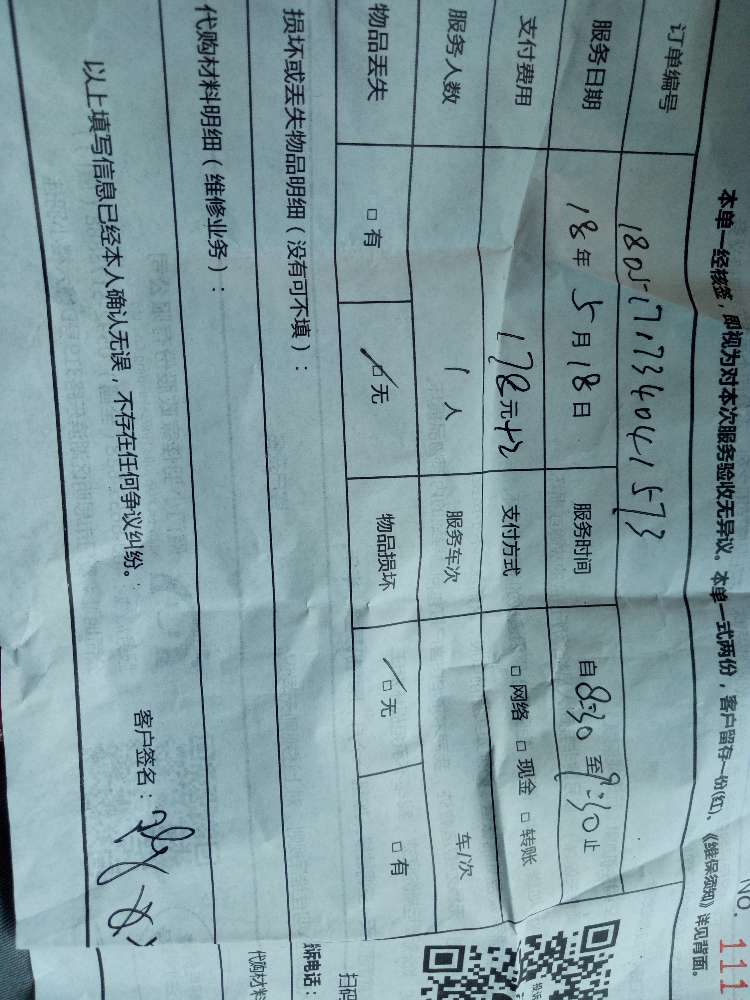 NO. 111
本单一经核签，即视为对本次服务验收无异议。本单一式两份，客户留存一份(红)、《维保须知》详见背面。
订单编号 180517173404 1573
服务日期 18年 5月 18日 服务时间 自 8:30 至 9:30 止
支付费用 178元 支付方式 □ 网络 □ 现金 □ 转账
服务人数 1 人 服务车次 车/次
物品丢失 □ 有 □ 无 物品损坏 □ 无 □ 有
损坏或丢失物品明细（没有可不填）：
代购材料明细（维修业务）：
以上填写信息已经本人确认无误，不存在任何争议纠纷。
客户签名：
扫码
诉电话：
代购材料